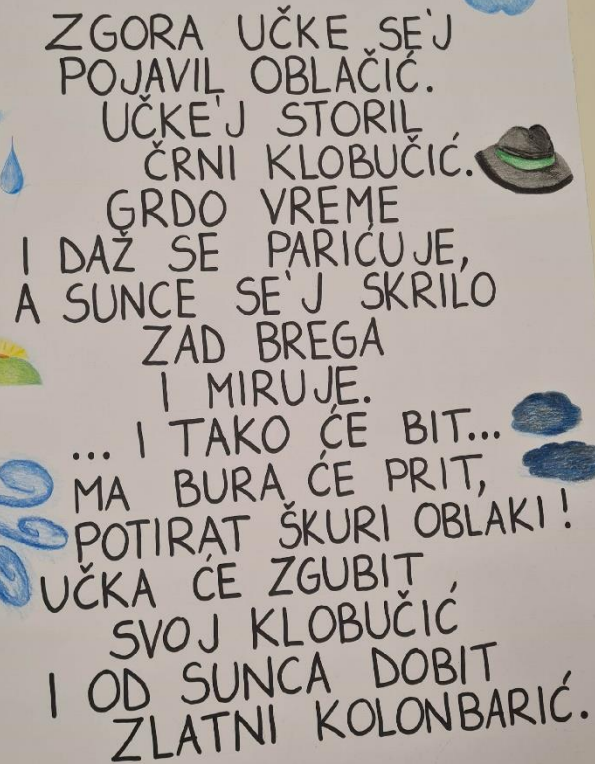 ZGORA UČKE SE'J
POJAVIL OBLAČIĆ.
UČKE'J STORIL
ČRNI KLOBUČIĆ.
GRDO VREME
I DAŽ SE PARIĆUJE,
A SUNCE SE'J SKRILO
ZAD BREGA
I MIRUJE.
... I TAKO ĆE BIT...
MA BURA ĆE PRIT,
POTIRAT ŠKURI OBLAKI!
UČKA ĆE ZGUBIT
SVOJ KLOBUČIĆ
I OD SUNCA DOBIT
ZLATNI KOLONBARIĆ.